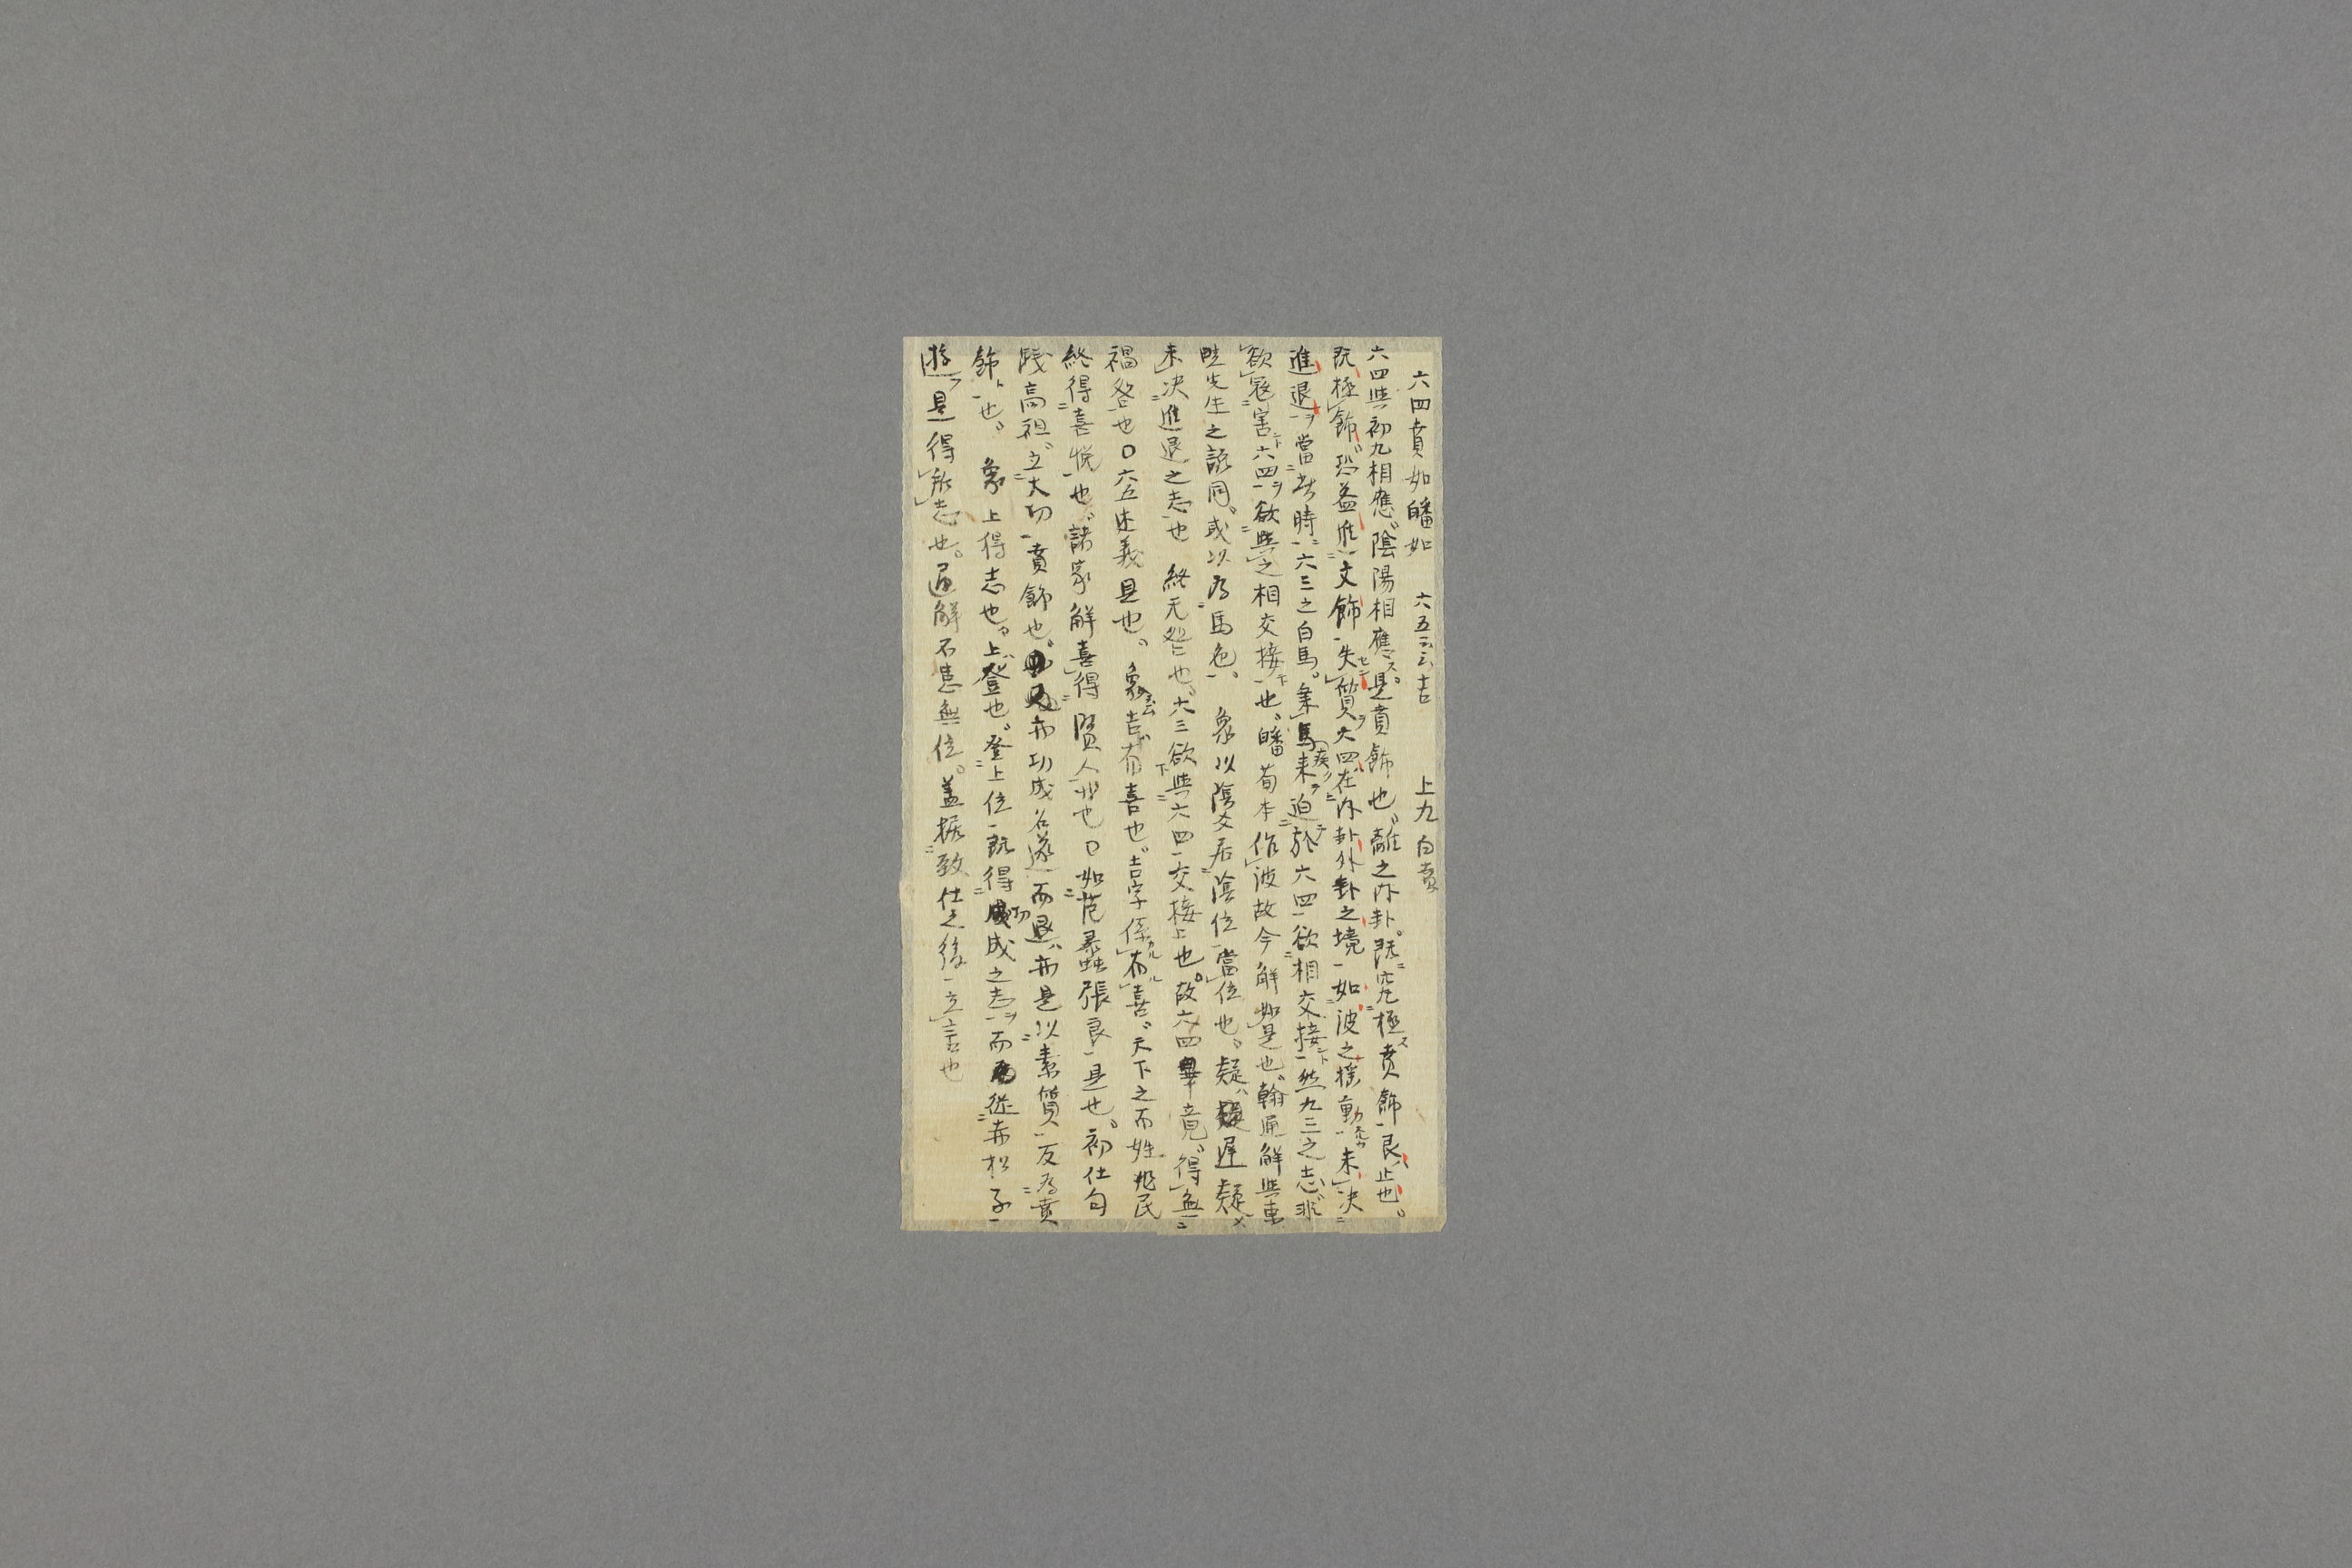 六四賁如皤如　六五云云吉　上九白賁
六四與初九相應陰陽相應ス是賁飾也離之內卦既究極ス賁飾艮止也
既極飾恐益進文飾失セン質ヲ六四在內卦外卦之境如波之搖動未決
進退ヲ當此時六三之白馬乘馬疾ク來ヲ迫於六四欲相交接ント然九三之志非
欲寇害ント六四ヲ欲與之相交接ト也皤荀本作波故今解如是也翰通解與東
畦先生之説同或以為馬色　象以陰交居陰位當位也疑ハ遲疑メ
未決進退之志也　終无咎也六三欲與六四交接上也故六四畢竟得無
禍咎也〇六五述義是也　象云吉有喜也吉字係カルル有ル喜天下之百姓兆民
終得喜悅也諸家解喜得賢人非也〇如范蠡張良是也初仕句
踐高祖立大功賁飾也亦功成名遂而退亦是以素質反為賁
飾ト也　象上得志也上登也登上位既得功成之志ヲ而從赤松子
遊フ是得所志也通解不患無位蓋据致仕之後立言也